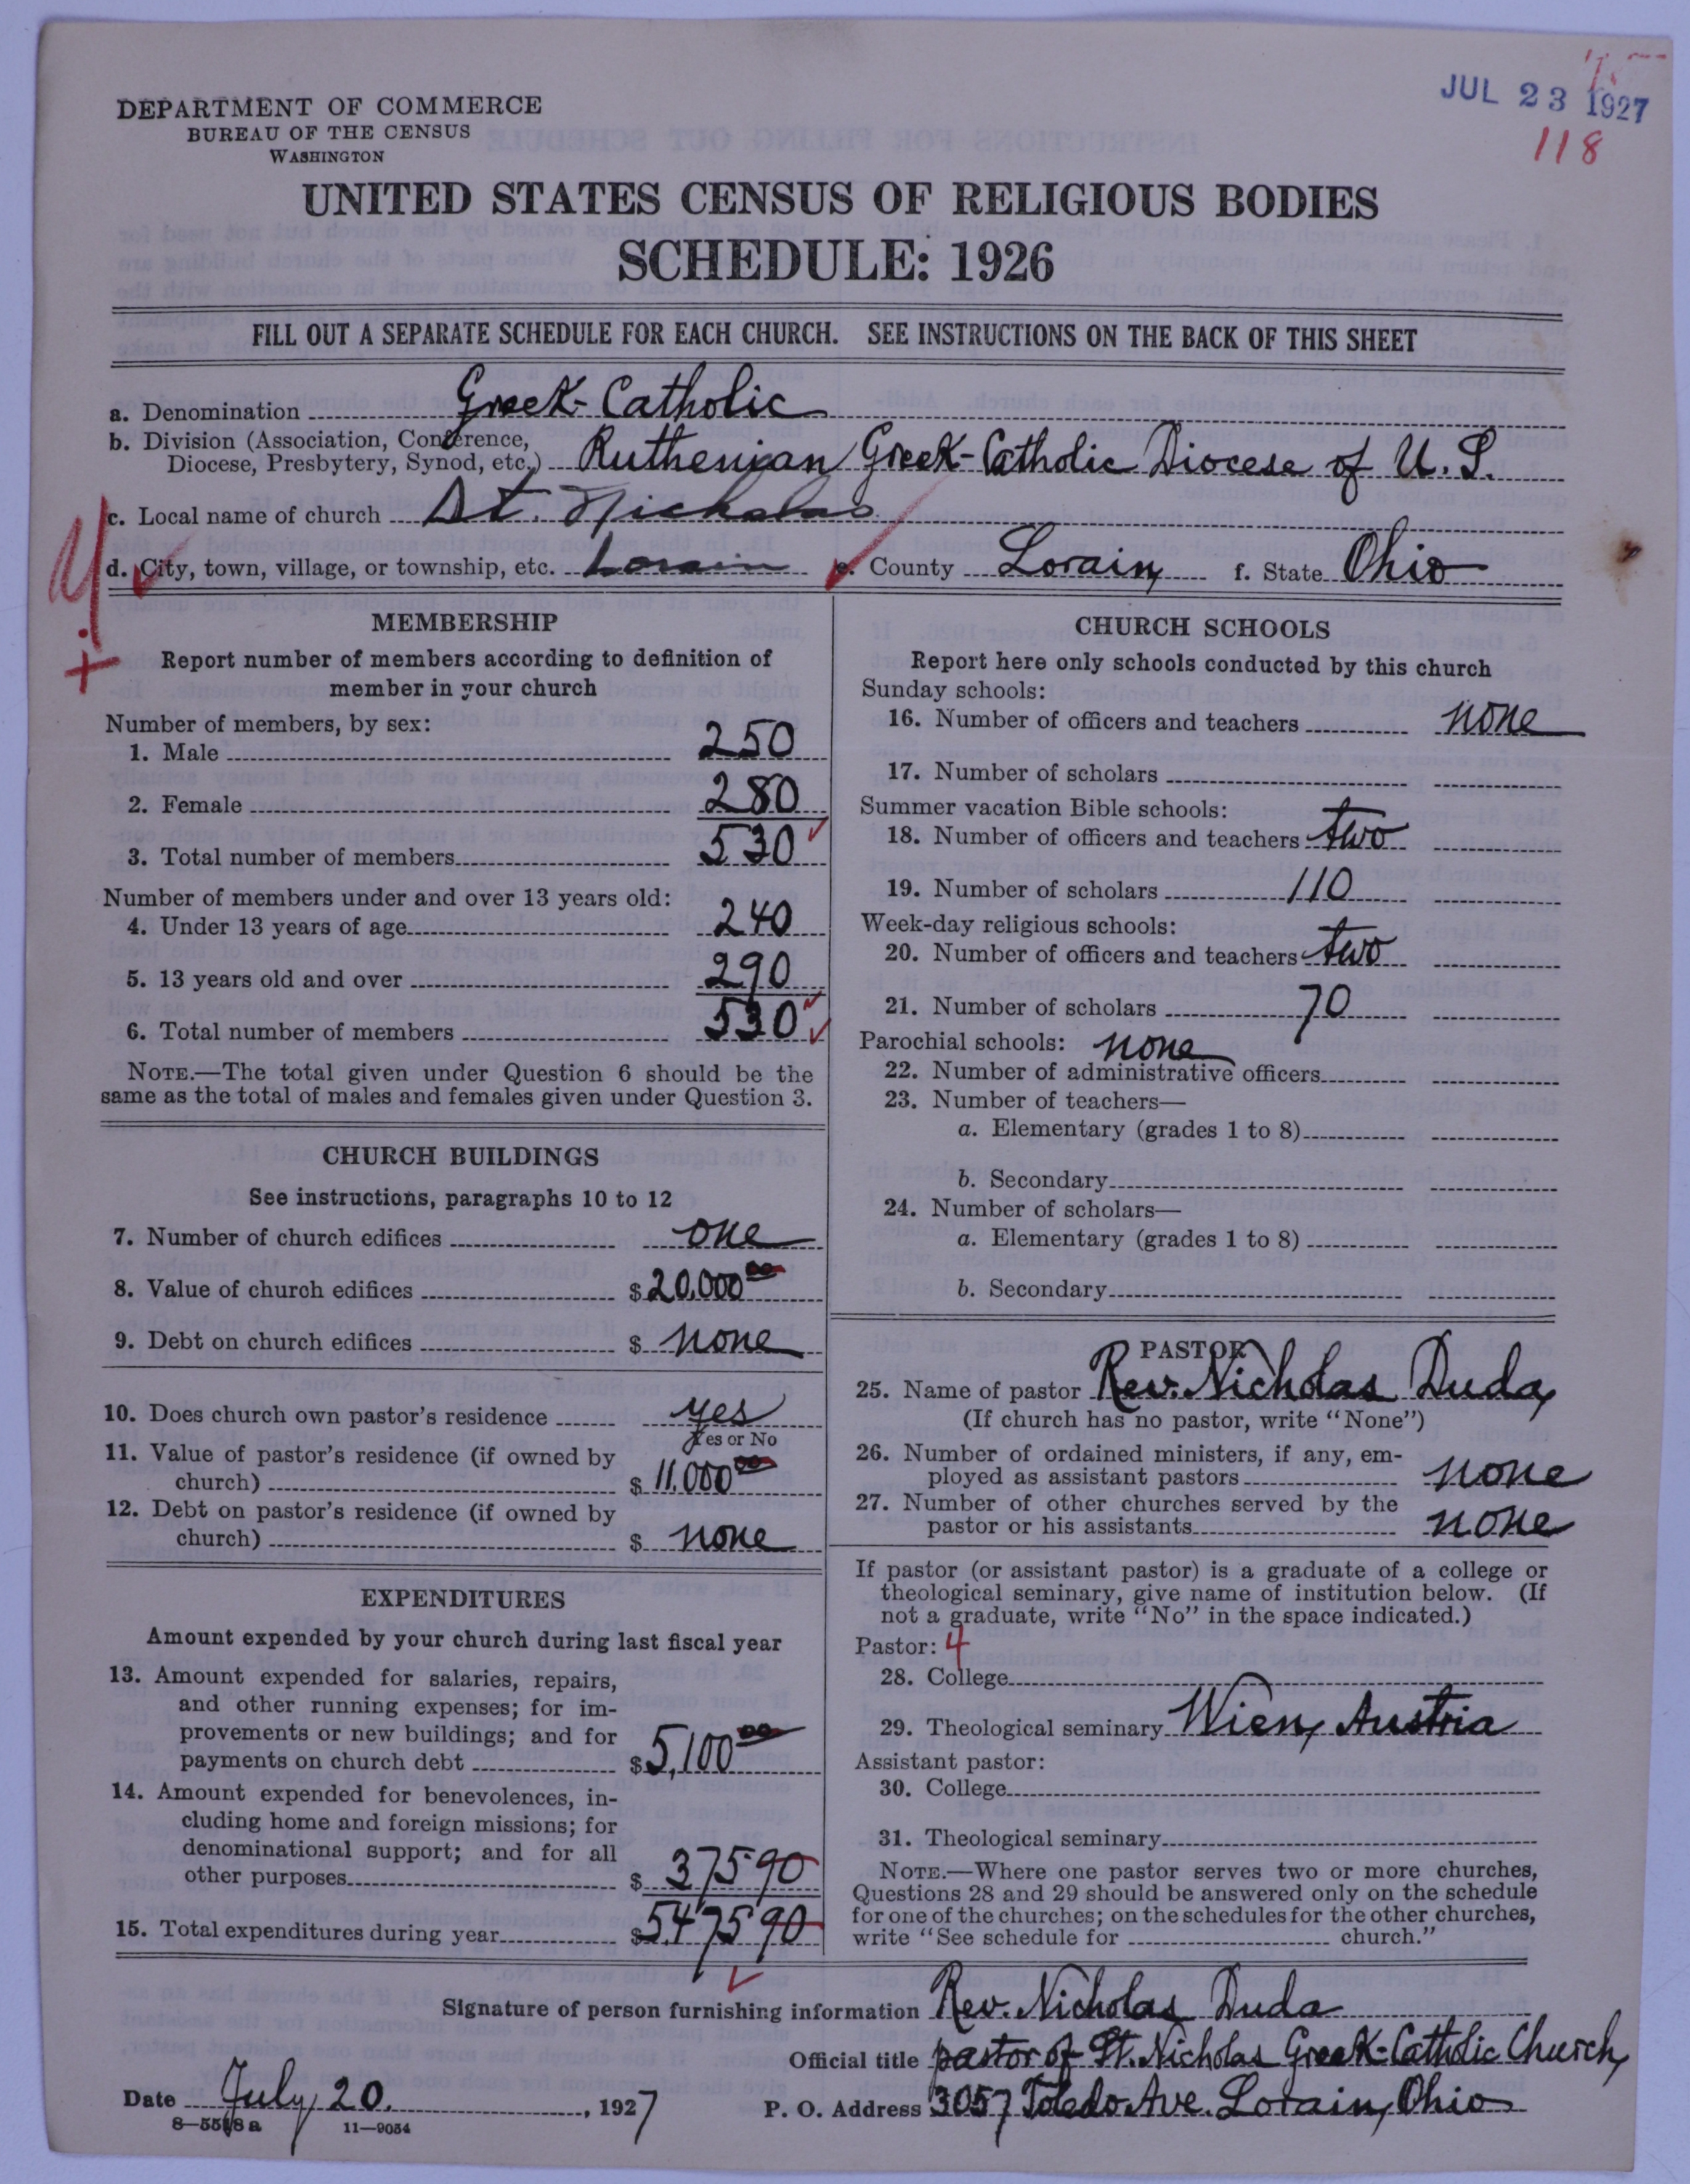 JUL 23 1927
118
DEPARTMENT OF COMMERCE
BUREAU OF THE CENSUS
WASHINGTON
UNITED STATES CENSUS OF RELIGIOUS BODIES
SCHEDULE: 1926
FILL OUT A SEPARATE SCHEDULE FOR EACH CHURCH. SEE INSTRUCTIONS ON THE BACK OF THIS SHEET
a. Denomination Greek-Catholic
b. Division (Association, Conference,
Diocese, Presbytery, Synod, etc.) Ruthenian Greek-Catholic Diocese of U.S.
c. Local name of church St. Nicholas
d. City, town, village, or township, etc. Lorain e. County Lorain, f. State Ohio
MEMBERSHIP
Report number of members according to definition of
member in your church
Number of members, by sex:
1. Male 250
2. Female 280
3. Total number of members 530
Number of members under and over 13 years old:
4. Under 13 years of age 240
5. 13 years old and over 290
6. Total number of members 530
NOTE.—The total given under Question 6 should be the
same as the total of males and females given under Question 3.
CHURCH BUILDINGS
See instructions, paragraphs 10 to 12
7. Number of church edifices one
8. Value of church edifices $20,000 00
9. Debt on church edifices $ none
10. Does church own pastor's residence yes
Yes or No
11. Value of pastor's residence (if owned by
church) $11,000 00
12. Debt on pastor's residence (if owned by
church) $ none
EXPENDITURES
Amount expended by your church during last fiscal year
13. Amount expended for salaries, repairs,
and other running expenses; for im-
provements or new buildings; and for
payments on church debt $5,100 00
14. Amount expended for benevolences, in-
cluding home and foreign missions; for
denominational support; and for all
other purposes $ 375 90
15. Total expenditures during year $5,475 90
CHURCH SCHOOLS
Report here only schools conducted by this church
Sunday schools:
16. Number of officers and teachers none
17. Number of scholars
Summer vacation Bible schools:
18. Number of officers and teachers two
19. Number of scholars 110
Week-day religious schools:
20. Number of officers and teachers two
21. Number of scholars 70
Parochial schools: none
22. Number of administrative officers
23. Number of teachers—
a. Elementary (grades 1 to 8)
b. Secondary
24. Number of scholars—
a. Elementary (grades 1 to 8)
b. Secondary
PASTOR
25. Name of pastor Rev. Nicholas Duda,
(If church has no pastor, write "None")
26. Number of ordained ministers, if any, em-
ployed as assistant pastors none
27. Number of other churches served by the
pastor or his assistants none
If pastor (or assistant pastor) is a graduate of a college or
theological seminary, give name of institution below. (If
not a graduate, write "No" in the space indicated.)
Pastor: 4
28. College
29. Theological seminary Wien, Austria
Assistant pastor:
30. College
31. Theological seminary
NOTE.—Where one pastor serves two or more churches,
Questions 28 and 29 should be answered only on the schedule
for one of the churches; on the schedules for the other churches,
write "See schedule for church."
Signature of person furnishing information Rev. Nicholas Duda
Official title pastor of St. Nicholas Greek-Catholic Church,
Date July 20, 1927 P. O. Address 3057 Toledo Ave. Lorain, Ohio
8—5518 a 11—9054